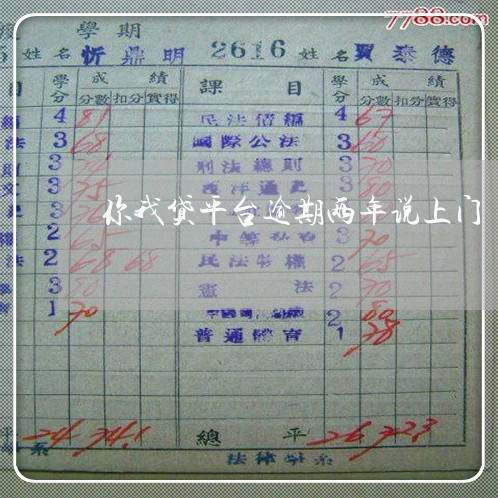 7788.com
學期
姓名 忻鼎明 2616 姓名 賈泰德
目 學分 成績 課目 學分 成績
分數 扣分 實得 分數 扣分 實得
4 81 民法債編 4 67
法 3 68 國際公法 3 60
3 刑法總則 3 70
文 3 75 西洋通史 3 80
你我贷平台逾期两年说上门
2 65 3 70
法 2 68 68 民法物權 2 65
3 80 憲法 2 70
1 70 2 80
普通體育 1 78
平 24 74.1 總平 26 72.3
系 法律學系